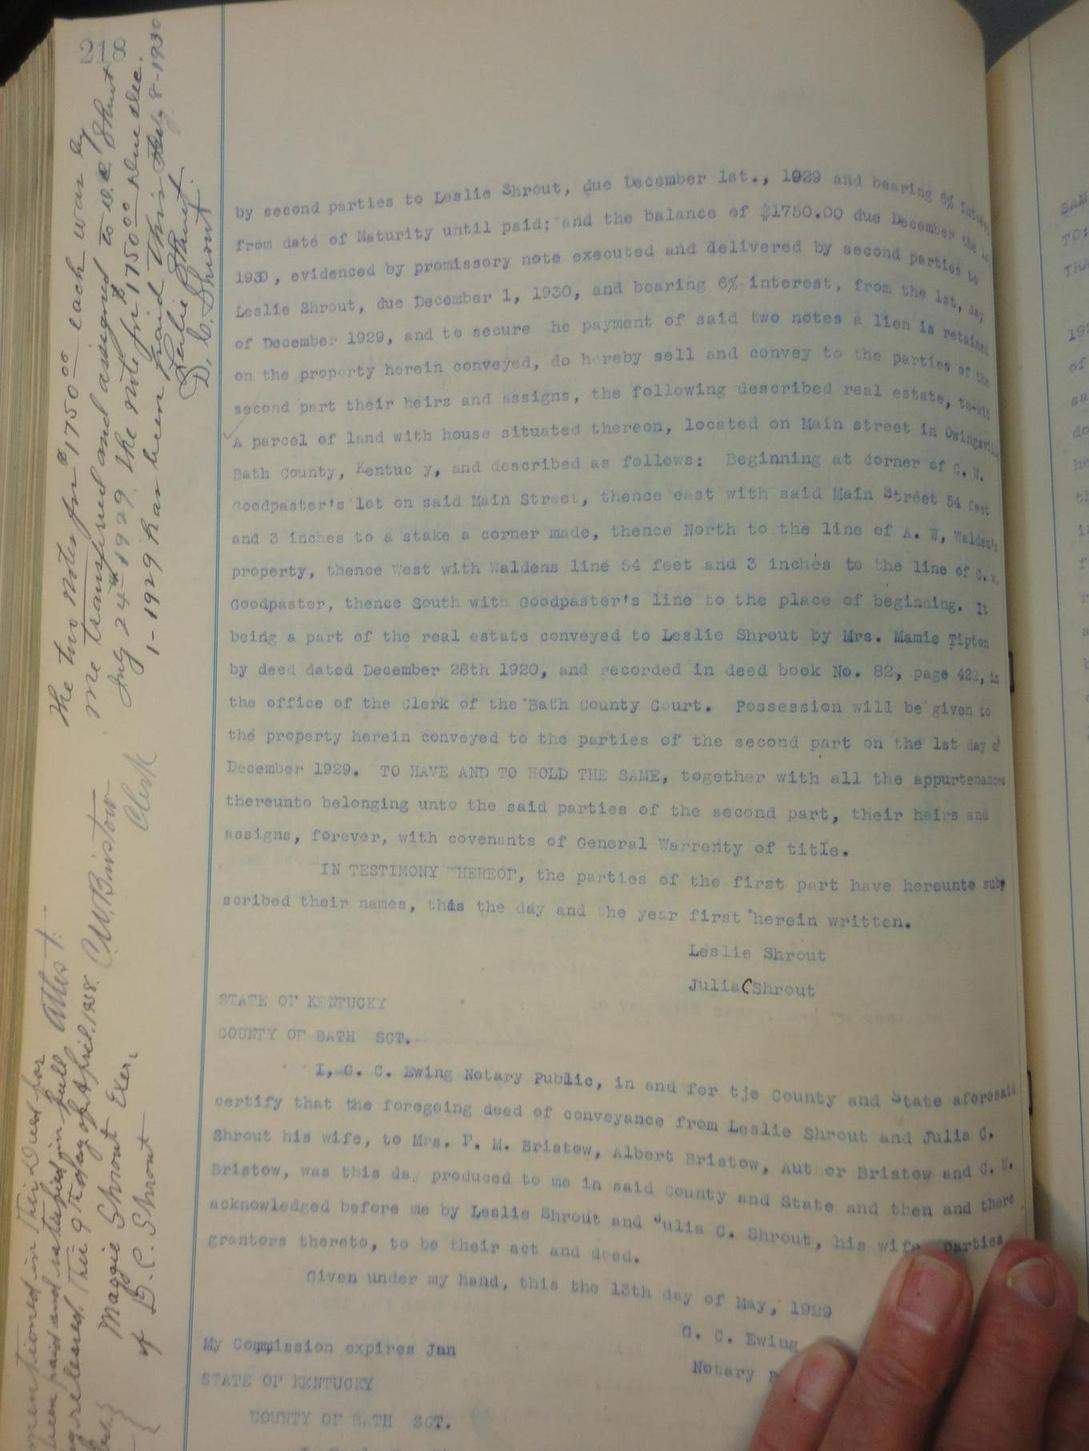 218
by second parties to Leslie Shrout, due December 1st., 1929 and bearing 6% interest
from date of Maturity until paid; and the balance of $1750.00 due December the 1st
1930, evidenced by promissory note executed and delivered by second parties to
Leslie Shrout, due December 1, 1930, and bearing 6% interest, from the 1st, day
of December 1929, and to secure he payment of said two notes a lien is retained
on the property herein conveyed, do hereby sell and convey to the parties of the
second part their heirs and assigns, the following described real estate, to-wit
A parcel of land with house situated thereon, located on Main street in Owingsville
Bath County, Kentuc y, and described as follows: Beginning at corner of C. W.
Goodpaster's lot on said Main Street, thence east with said Main Street 54 feet
and 3 inches to a stake a corner made, thence North to the line of A. W, Walden's
property, thence West with Waldens line 54 feet and 3 inches to the line of C. W.
Goodpaster, thence South with Goodpaster's line to the place of beginning. It
being a part of the real estate conveyed to Leslie Shrout by Mrs. Mamie Tipton
by deed dated December 28th 1920, and recorded in deed book No. 82, page 422, in
the office of the Clerk of the Bath County Court. Possession will be given to
the property herein conveyed to the parties of the second part on the 1st day of
December 1929. TO HAVE AND TO HOLD THE SAME, together with all the appurtenances
thereunto belonging unto the said parties of the second part, their heirs and
assigns, forever, with covenants of General Warrenty of title.
IN TESTIMONY HEREOF, the parties of the first part have hereunto sub
scribed their names, this the day and the year first herein written.
Leslie Shrout
Julia C Shrout
STATE OF KENTUCKY
COUNTY OF BATH SCT.
I, C. C. Ewing Notary Public, in and for tje County and State aforesaid
certify that the foregoing deed of conveyance from Leslie Shrout and Julia C.
Shrout his wife, to Mrs. F. M. Bristow, Albert Bristow, Aut or Bristow and C. W.
Bristow, was this day produced to me in said County and State and then and there
acknowledged before me by Leslie Shrout and Julia C. Shrout, his wife, parties
grantors thereto, to be their act and deed.
Given under my hand, this the 13th day of May, 1929
C. C. Ewing
Notary P
My Commission expires Jan
STATE OF KENTUCKY
COUNTY OF BATH SCT.
The two notes for $1750.00 each was by
me transfered and assigned to D.C. Shrout
July 24th 1929 the note for $1750.00 due Dec.
1-1929 has been paid This July 8-1930
Leslie Shrout
D. C. Shrout
mentioned in this Deed for
been paid and satisfied in full Attest
released. This 9th day of April. 1938. C.W. Bristow Clerk
Maggie Shrout Exer.
of D. C. Shrout